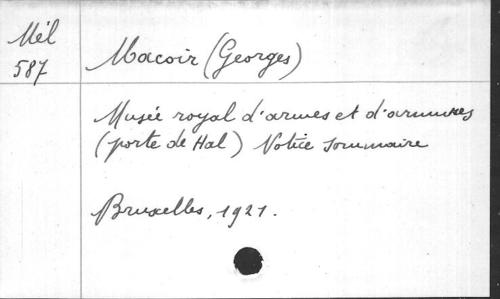 Mél
587
Macoir (Georges)
Musée royal d'armes et d'armures
(porte de Hal) Notice sommaire
Bruxelles, 1921.